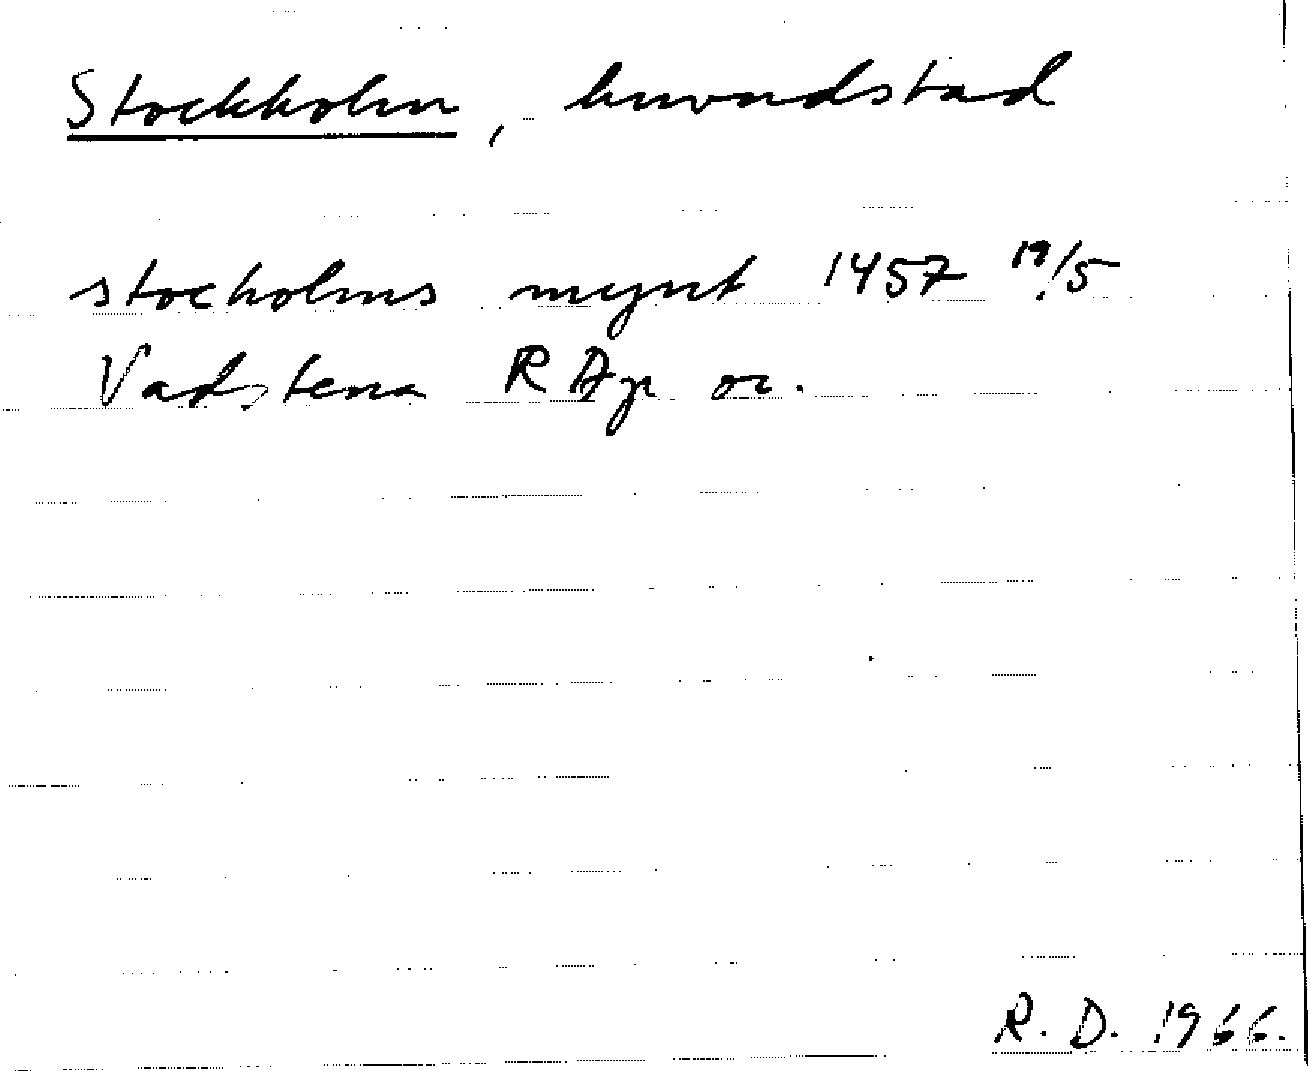 Stockholm, huvudstad
stocholms mynt 1457 19/5
Vadstena RAp or.
R. D. 1966.